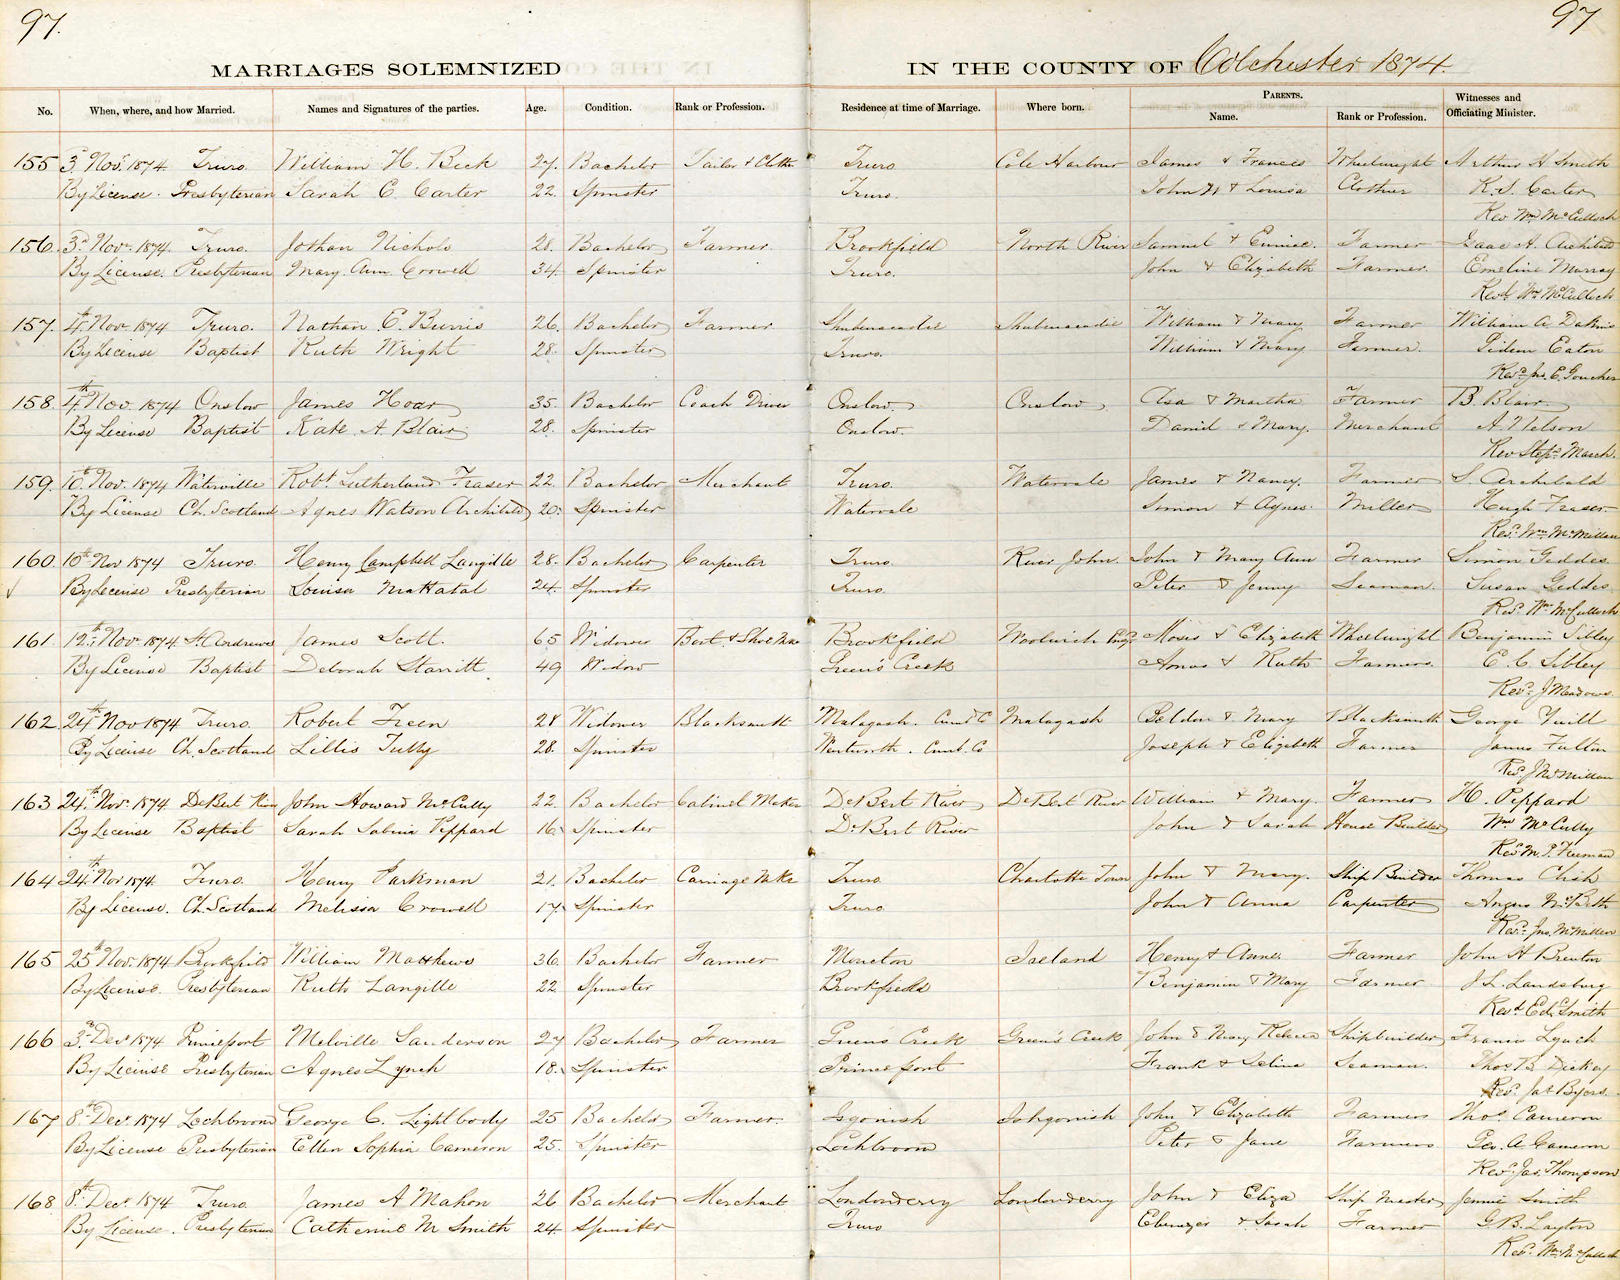 97.
97
MARRIAGES SOLEMNIZED IN THE COUNTY OF Colchester 1874.
No. When, where, and how Married. Names and Signatures of the parties. Age. Condition. Rank or Profession. Residence at time of Marriage. Where born. PARENTS. Name. Rank or Profession. Witnesses and Officiating Minister.
155 3d Nov. 1874 Truro. William H. Beck 27. Bachelor Tailor & Clothr Truro Cole Harbour James & Frances Wheelwright Arthur H Smith
By License. Presbyterian Sarah E. Carter 22. Spinster Truro. John W & Louisa Clothier R. S. Carter
Rev Wm McCulloch
156. 3d Nov. 1874. Truro. Jothan Nichols 28. Bachelor Farmer. Brookfield North River Samuel & Eunice. Farmer Isaac A. Archibald
By License. Presbyterian Mary Ann Crowell 34. Spinster Truro. John & Elizabeth Farmer. Emeline Murray
Revd Wm McCulloch
157. 4th Nov 1874 Truro. Nathan E. Burris 26. Bachelor Farmer Shubenacadie Shubenacadie William & Mary Farmer William A. Dakins
By License Baptist Ruth Wright 28. Spinster Truro. William & Mary Farmer. Gideon Eaton
Revd Jno. E. Goucher
158. 4th Nov. 1874 Onslow James Hoar 35. Bachelor Coach Driver Onslow. Onslow Asa & Martha Farmer B. Blair
By License Baptist Kate A. Blair 28. Spinster Onslow. Daniel & Mary. Merchant A. Nelson
Rev Stepn March.
159. 10th Nov. 1874 Waterville Robt Lutherland Fraser 22. Bachelor Merchant Truro. Watervale James & Nancy. Farmer S. Archibald
By License Ch. Scotland Agnes Watson Archibald 20. Spinster Watervale Simon & Agnes. Miller Hugh Fraser
Revd Wm McMillan
160. 10th Nov 1874 Truro. Henry Campbell Langille 28. Bachelor Carpenter Truro. River John. John & Mary Ann Farmer Simon Geddes.
By License Presbyterian Louisa Mattatal 24. Spinster Truro. Peter & Jenny Seaman. Susan Geddes
Revd Wm McCulloch
161. 12th Nov 1874 St. Andrews James Scott. 65 Widower Boot & Shoe Mar Brookfield Woolwich Engd Moses & Elizabeth Wheelwright Benjamin Sibley
By License Baptist Deborah Starritt. 49 Widow Green's Creek Amos & Ruth Farmers. E. C. Sibley
Revd J Meadows
162. 24th Nov 1874 Truro. Robert Treen 28 Widower Blacksmith Malagash. Cumbd C Malagash Seldon & Mary Blacksmith George Yuill
By License Ch. Scotland Lillis Tully 28. Spinster Wentworth. Cumb. Co Joseph & Elizabeth Farmer James Fulton
Revd J McMillan
163 24th Nov. 1874. DeBert River John Howard McCully 22. Bachelor Cabinet Maker DeBert River DeBert River William & Mary. Farmer H. Peppard
By License Baptist Sarah Sabina Peppard 16. Spinster DeBert River John & Sarah House Builder Wm McCully
Revd M. P. Freeman
164 24th Nov 1874. Truro. Henry Parkman 21. Bachelor Carriage Mkr Truro Charlotte Town John & Mary. Ship Builder Thomas Clish
By License. Ch. Scotland Melissa Crowell 17. Spinster Truro John & Anna Carpenter Angus McBeth
Revd. Jno. McMillan
165 25th Nov. 1874 Brookfield William Matthews 36. Bachelor Farmer Moncton Ireland Henry & Anne. Farmer John H Brenton
By License. Presbyterian Ruth Langille 22 Spinster Brookfield Benjamin & Mary Farmer J. L. Landsburg
Revd Ed. Smith
166 3rd Decr 1874 Princeport Melville Sanderson 27 Bachelor Farmer Greens Creek Green's Creek John & Mary Rebecca Shipbuilder Francis Lynch
By License Presbyterian Agnes Lynch 18. Spinster Princeport Frank & Selina Seaman. Thos B. Dickey
Revd. Jas Byers.
167 8th Decr 1874 Lochbroom George C. Lightbody 25 Bachelor Farmer. Isgonish Ishgonish John & Elizabeth Farmers Thos. Cameron
By License Presbyterian Ellen Sophia Cameron 25. Spinster Lochbroom Peter & Jane Farmers. Geo. A. Cameron
Revd. Jas. Thompson
168 8th Decr. 1874 Truro James A Mahon 26 Bachelor Merchant Londonderry Londonderry John & Eliza Ship Master Jennie Smith
By License. Presbyterian Catherine M Smith 24. Spinster Truro Ebenezer & Sarah Farmer G. B. Layton
Revd. Wm McCulloch